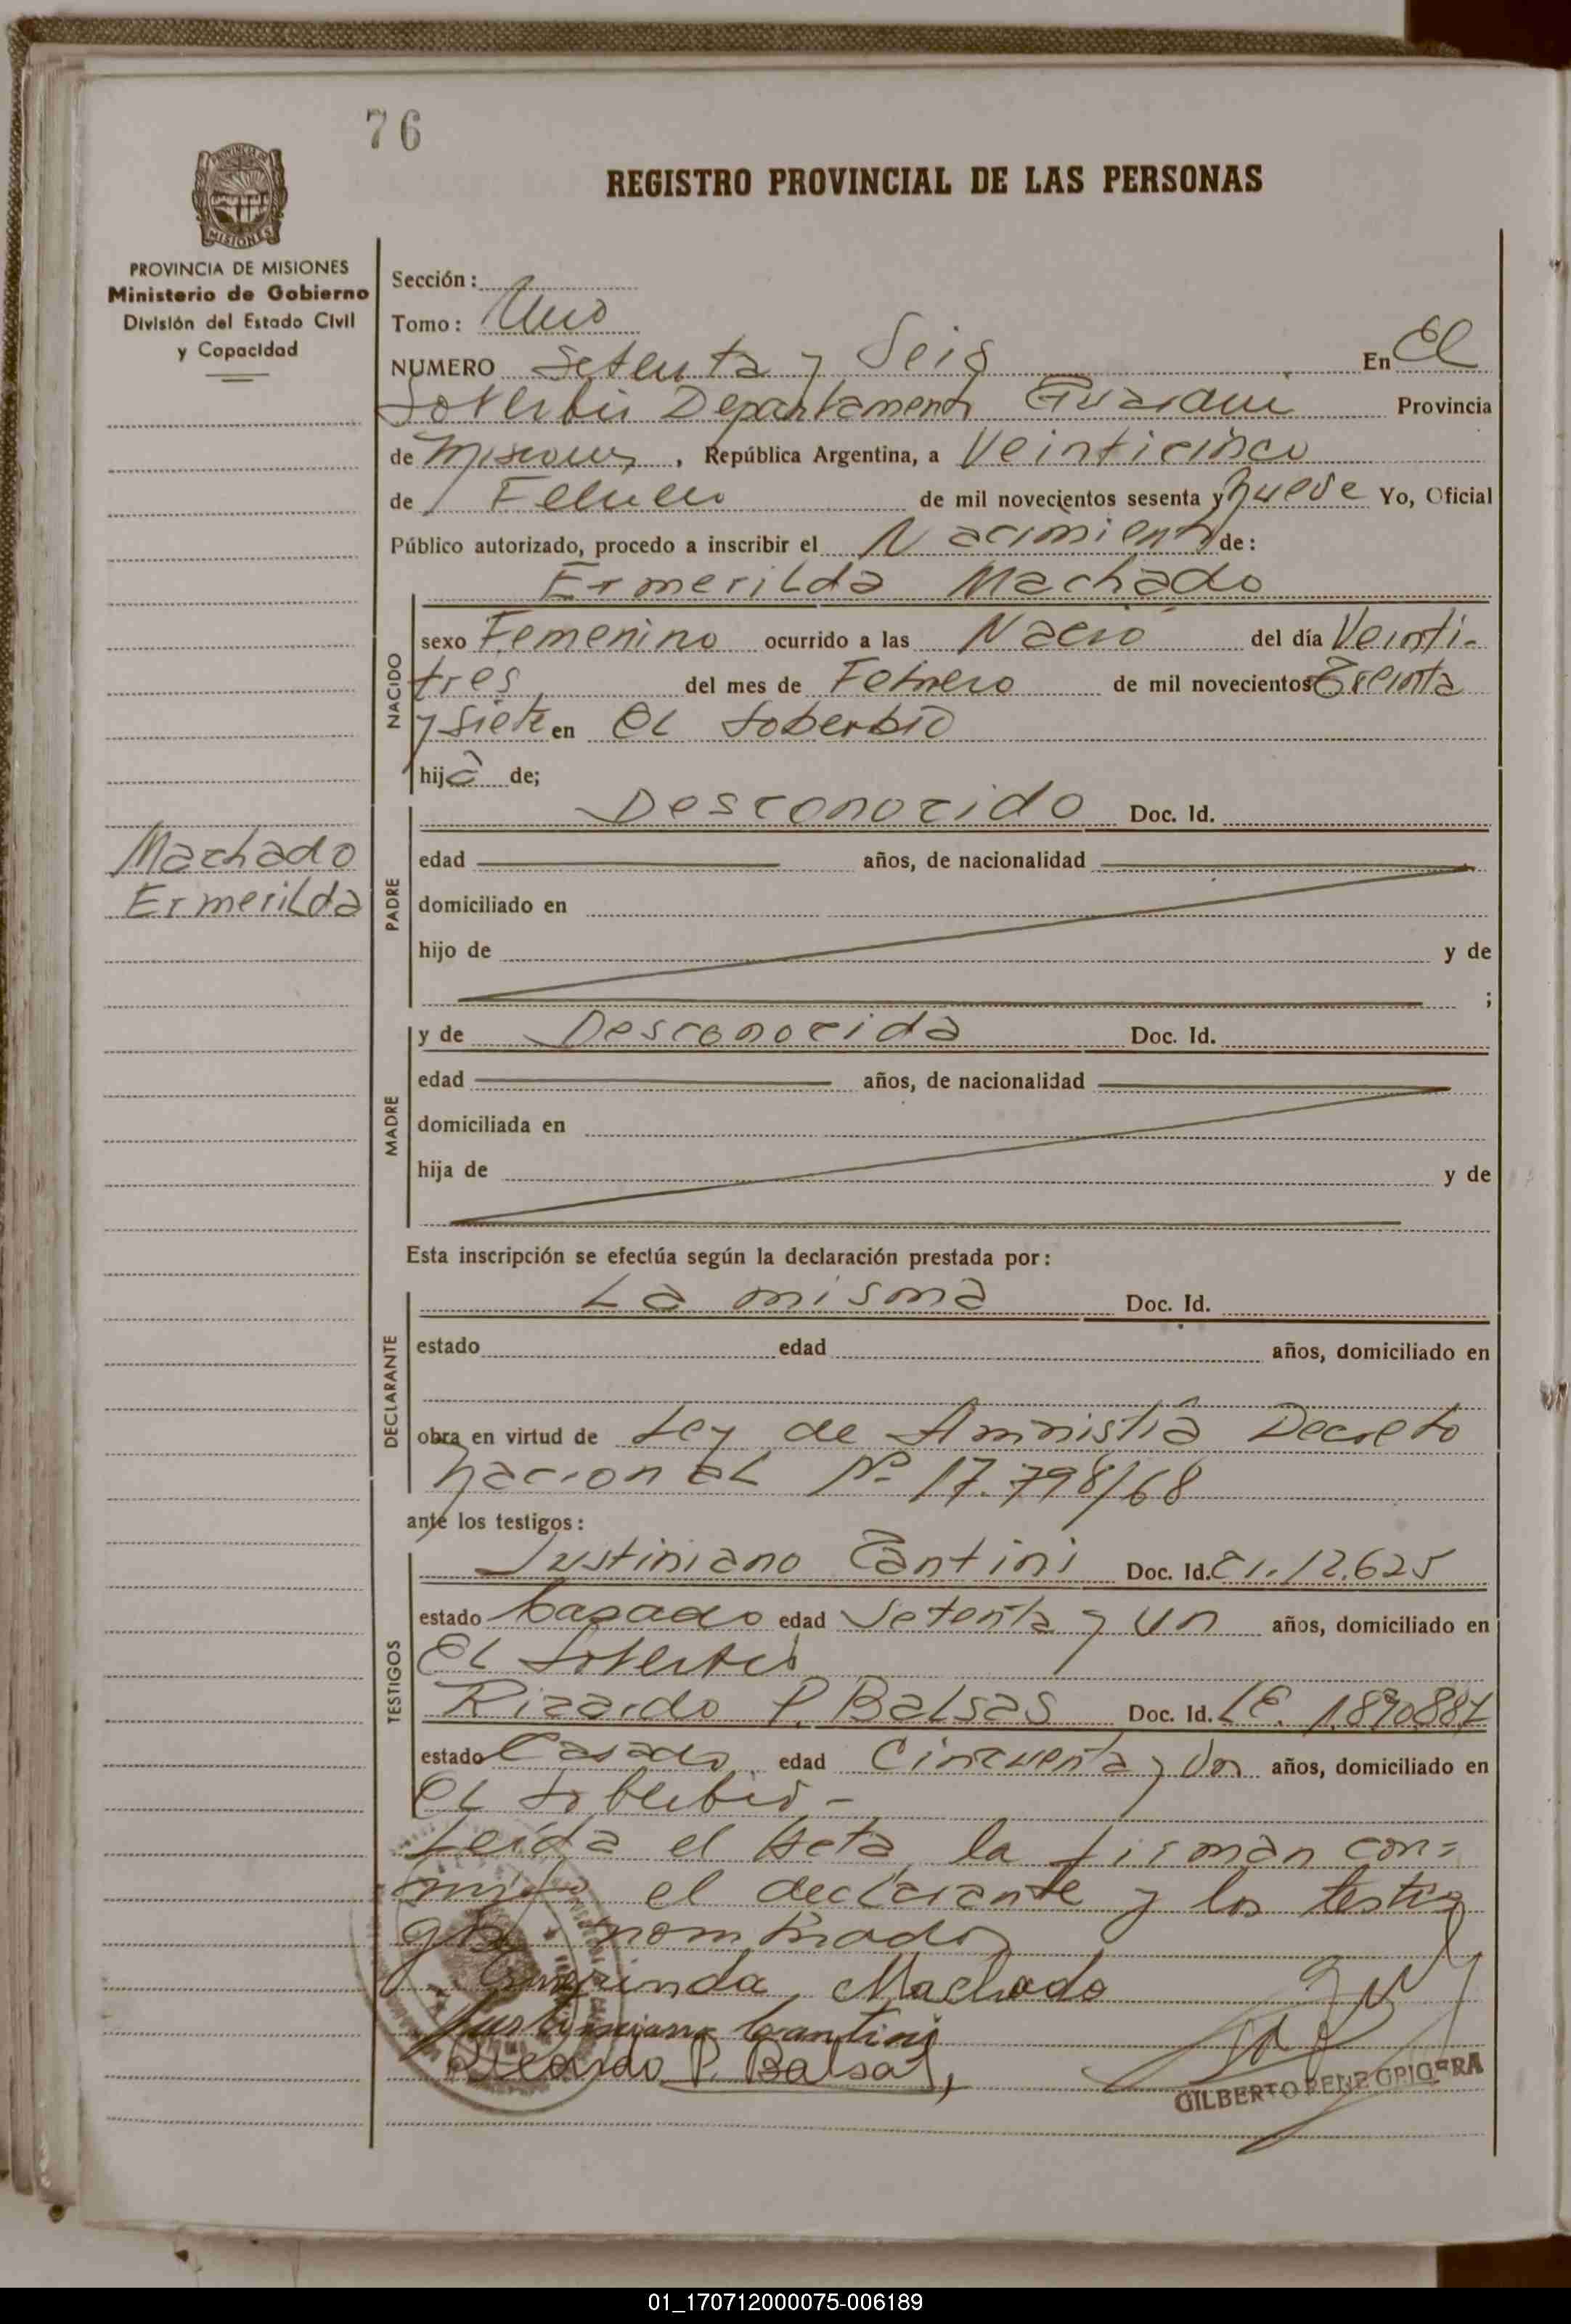 76
REGISTRO PROVINCIAL DE LAS PERSONAS
PROVINCIA DE MISIONES
Ministerio de Gobierno
División del Estado Civil
y Capacidad
Sección:
Tomo: Uno
NUMERO Setenta y Seis En El
Soberbio Departamento Guaraní Provincia
de Misiones, República Argentina, a Veinticinco
de Febrero de mil novecientos sesenta y nueve Yo, Oficial
Público autorizado, procedo a inscribir el Nacimiento de:
Ermerilda Machado
NACIDO
sexo Femenino ocurrido a las Nació del día Veinti-
tres del mes de Febrero de mil novecientos Treinta
y siete en El Soberbio
hija de;
Desconocido Doc. Id.
Machado
Ermerilda
PADRE
edad años, de nacionalidad
domiciliado en
hijo de y de
;
MADRE
y de Desconocida Doc. Id.
edad años, de nacionalidad
domiciliada en
hija de y de
Esta inscripción se efectúa según la declaración prestada por:
DECLARANTE
La misma Doc. Id.
estado edad años, domiciliado en
obra en virtud de Ley de Amnistía Decreto
nacional Nº 17.798/68
ante los testigos:
TESTIGOS
Justiniano Cantini Doc. Id. CI. 12.625
estado Casado edad Setenta y un años, domiciliado en
El Soberbio
Ricardo P. Balsas Doc. Id. LE.
estado Casado edad Cincuenta y Un años, domiciliado en
El Soberbio -
Leída el Acta la firman con=
migo el declarante y los testi
gos nombrados
Machado
Justiniano Cantini
Ricardo P. Balsas,
GILBERTO RENE GRIGERA
01_170712000075-006189